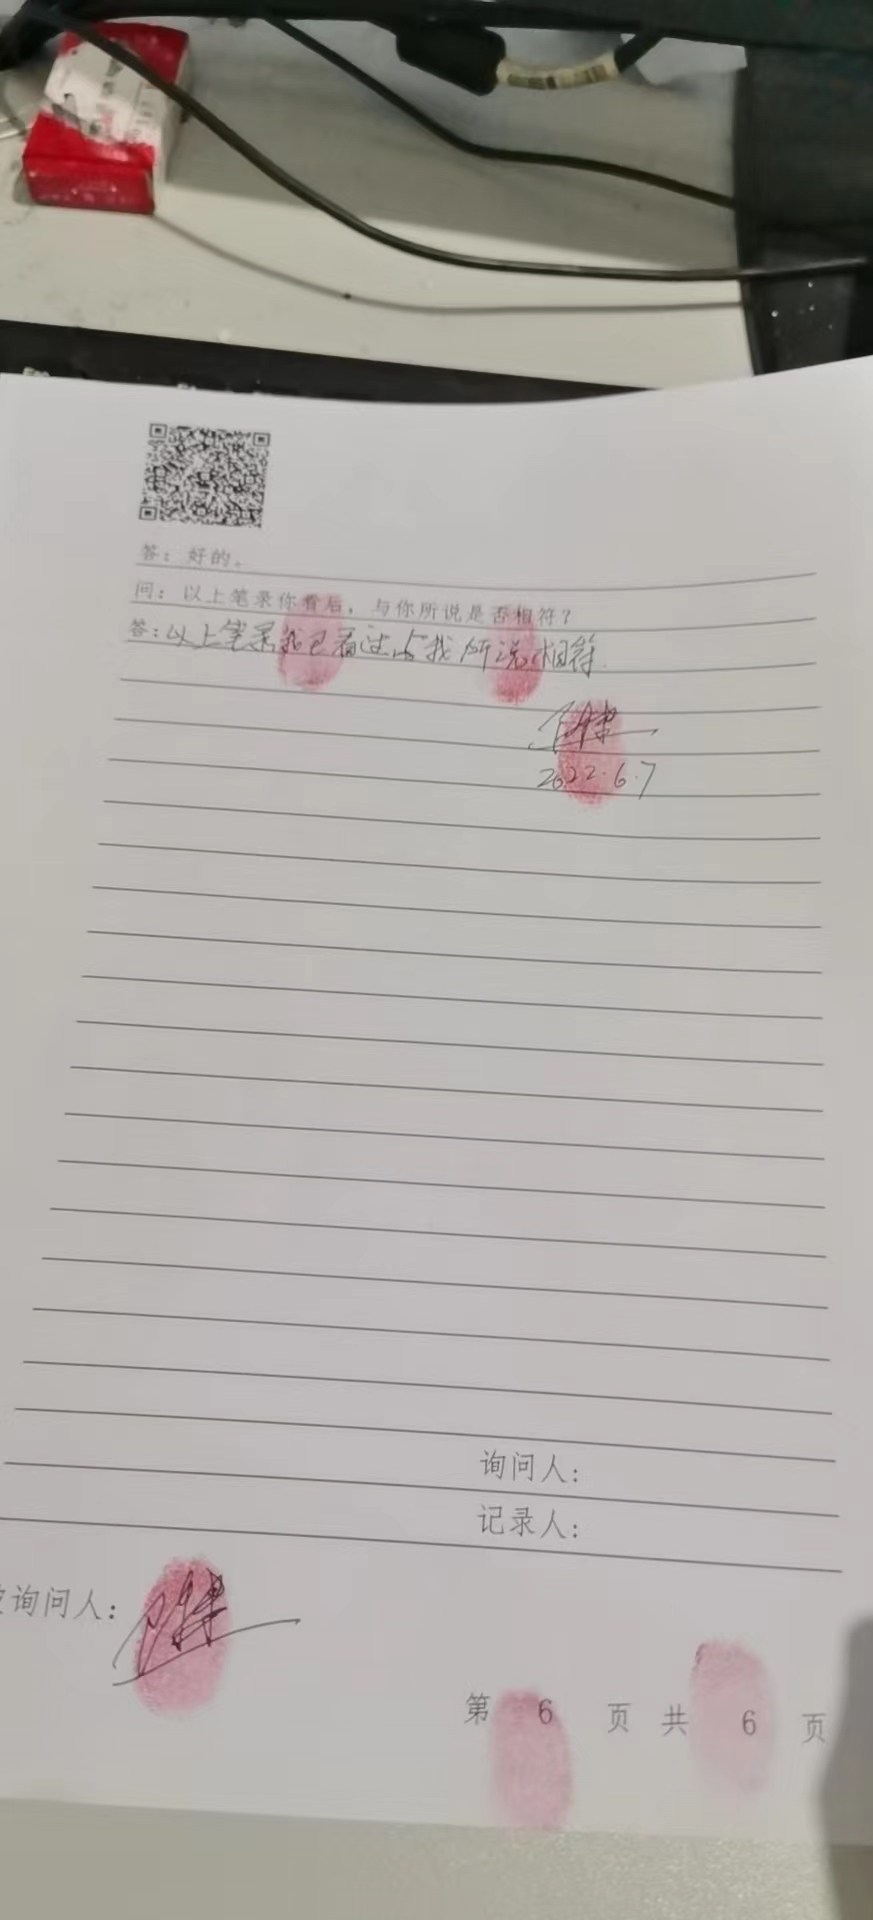 答：好的。
问：以上笔录你看后，与你所说是否相符？
答：以上笔录我已看过与我所说相符.
2022.6.7
询问人：
记录人：
询问人：
第 6 页 共 6 页